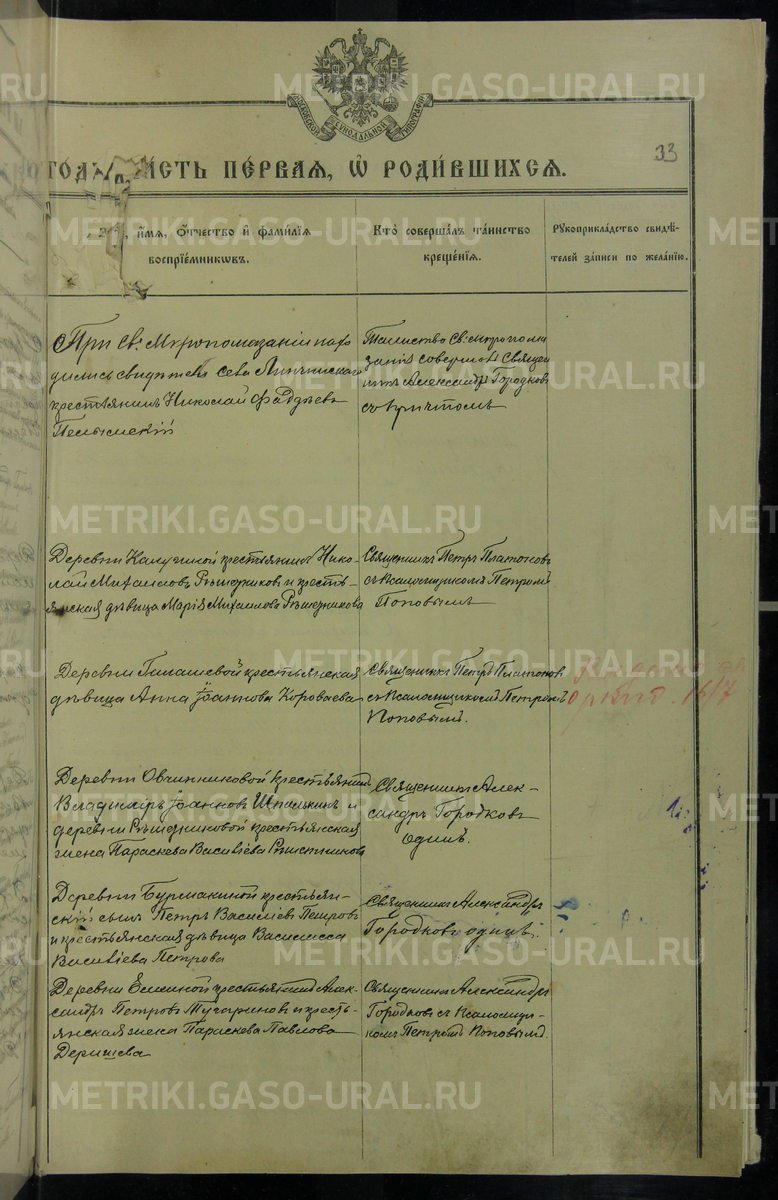 METRIKI.GASO-URAL.RU
МОСКОВСКОЙ СѴНОДАЛЬНОЙ ТИПОГРАФІИ
33
ГОДЪ, ЧА́СТЬ ПЕ́РВАЯ, Ѽ РОДИ́ВШИХСЯ.
и҆́мѧ, ѻ҆́тчество и҆ фами́лїѧ
воспрїе́мникѡвъ.
Кто̀ соверша́лъ та́инство
креще́нїѧ.
Рꙋкоприкла́дство свидѣ́-
телей за́писи по жела́нїю.
При Св. Мѵропомазаніи нахо
дились свидѣтели села
крестьянинъ Николай Фаддѣевъ
Пелымскій
Таинство Св. мѵропома
занія совершалъ Священ
никъ Александръ Городковъ
съ причтомъ
Деревни Калугиной крестьянинъ Нико-
лай Михаиловъ Рѣшетниковъ и кресть-
янская дѣвица Марія Михаилова Рѣшетникова
Священникъ Петръ Платоновъ
съ Псаломщикомъ Петромъ
Поповымъ
Деревни Гилашевой крестьянская
дѣвица Анна Іоаннова Короваева
Священникъ Петръ Платонов
съ Псаломщикомъ Петромъ
Поповымъ.
16/7
Деревни Овчинниковой крестьянинъ
Владиміръ Іоанновъ Шпилькинъ и
деревни Рѣшетниковой крестьянская
жена Параскева Василіева Рѣшетникова
Священникъ Алек-
сандръ Городковъ
одинъ.
Деревни Бурмакиной крестьян-
скій сынъ Петръ Василіевъ Петровъ
и крестьянская дѣвица Василисса
Василіева Петрова
Священникъ Александръ
Городковъ одинъ.
Деревни Елкиной крестьянинъ Алек-
сандръ Петровъ и кресть-
янская жена Параскева Павлова
Деришева
Священникъ Александръ
Городковъ съ Псаломщи-
комъ Петромъ Поповымъ.